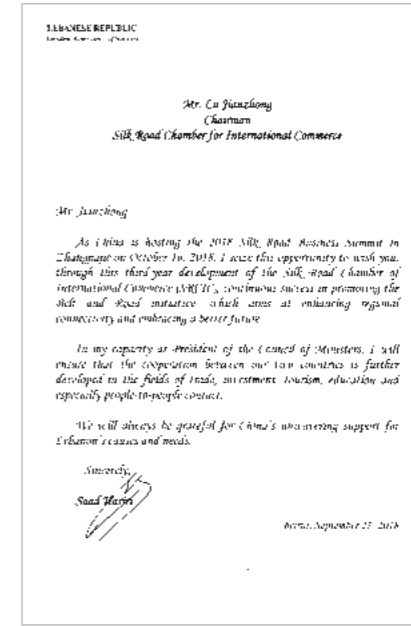 LEBANESE REPUBLIC
Mr. Lu Jianzhong
Chairman
Silk Road Chamber for International Commerce
Mr Jianzhong
As China is hosting the 2018 Silk Road Business Summit in
Zhangjiajie on October 16, 2018, I seize this opportunity to wish you,
through this third year development of the Silk Road Chamber of
International Commerce (SRCIC), continuous success in promoting the
Belt and Road initiative which aims at enhancing regional
connectivity and embracing a better future
In my capacity as President of the Council of Ministers, I will
ensure that the cooperation between our two countries is further
developed in the fields of trade, investment, tourism, education and
especially people-to-people contact.
We will always be grateful for China's unwavering support for
Lebanon's causes and needs.
Sincerely,
Saad Hariri
Beirut, September 27, 2018